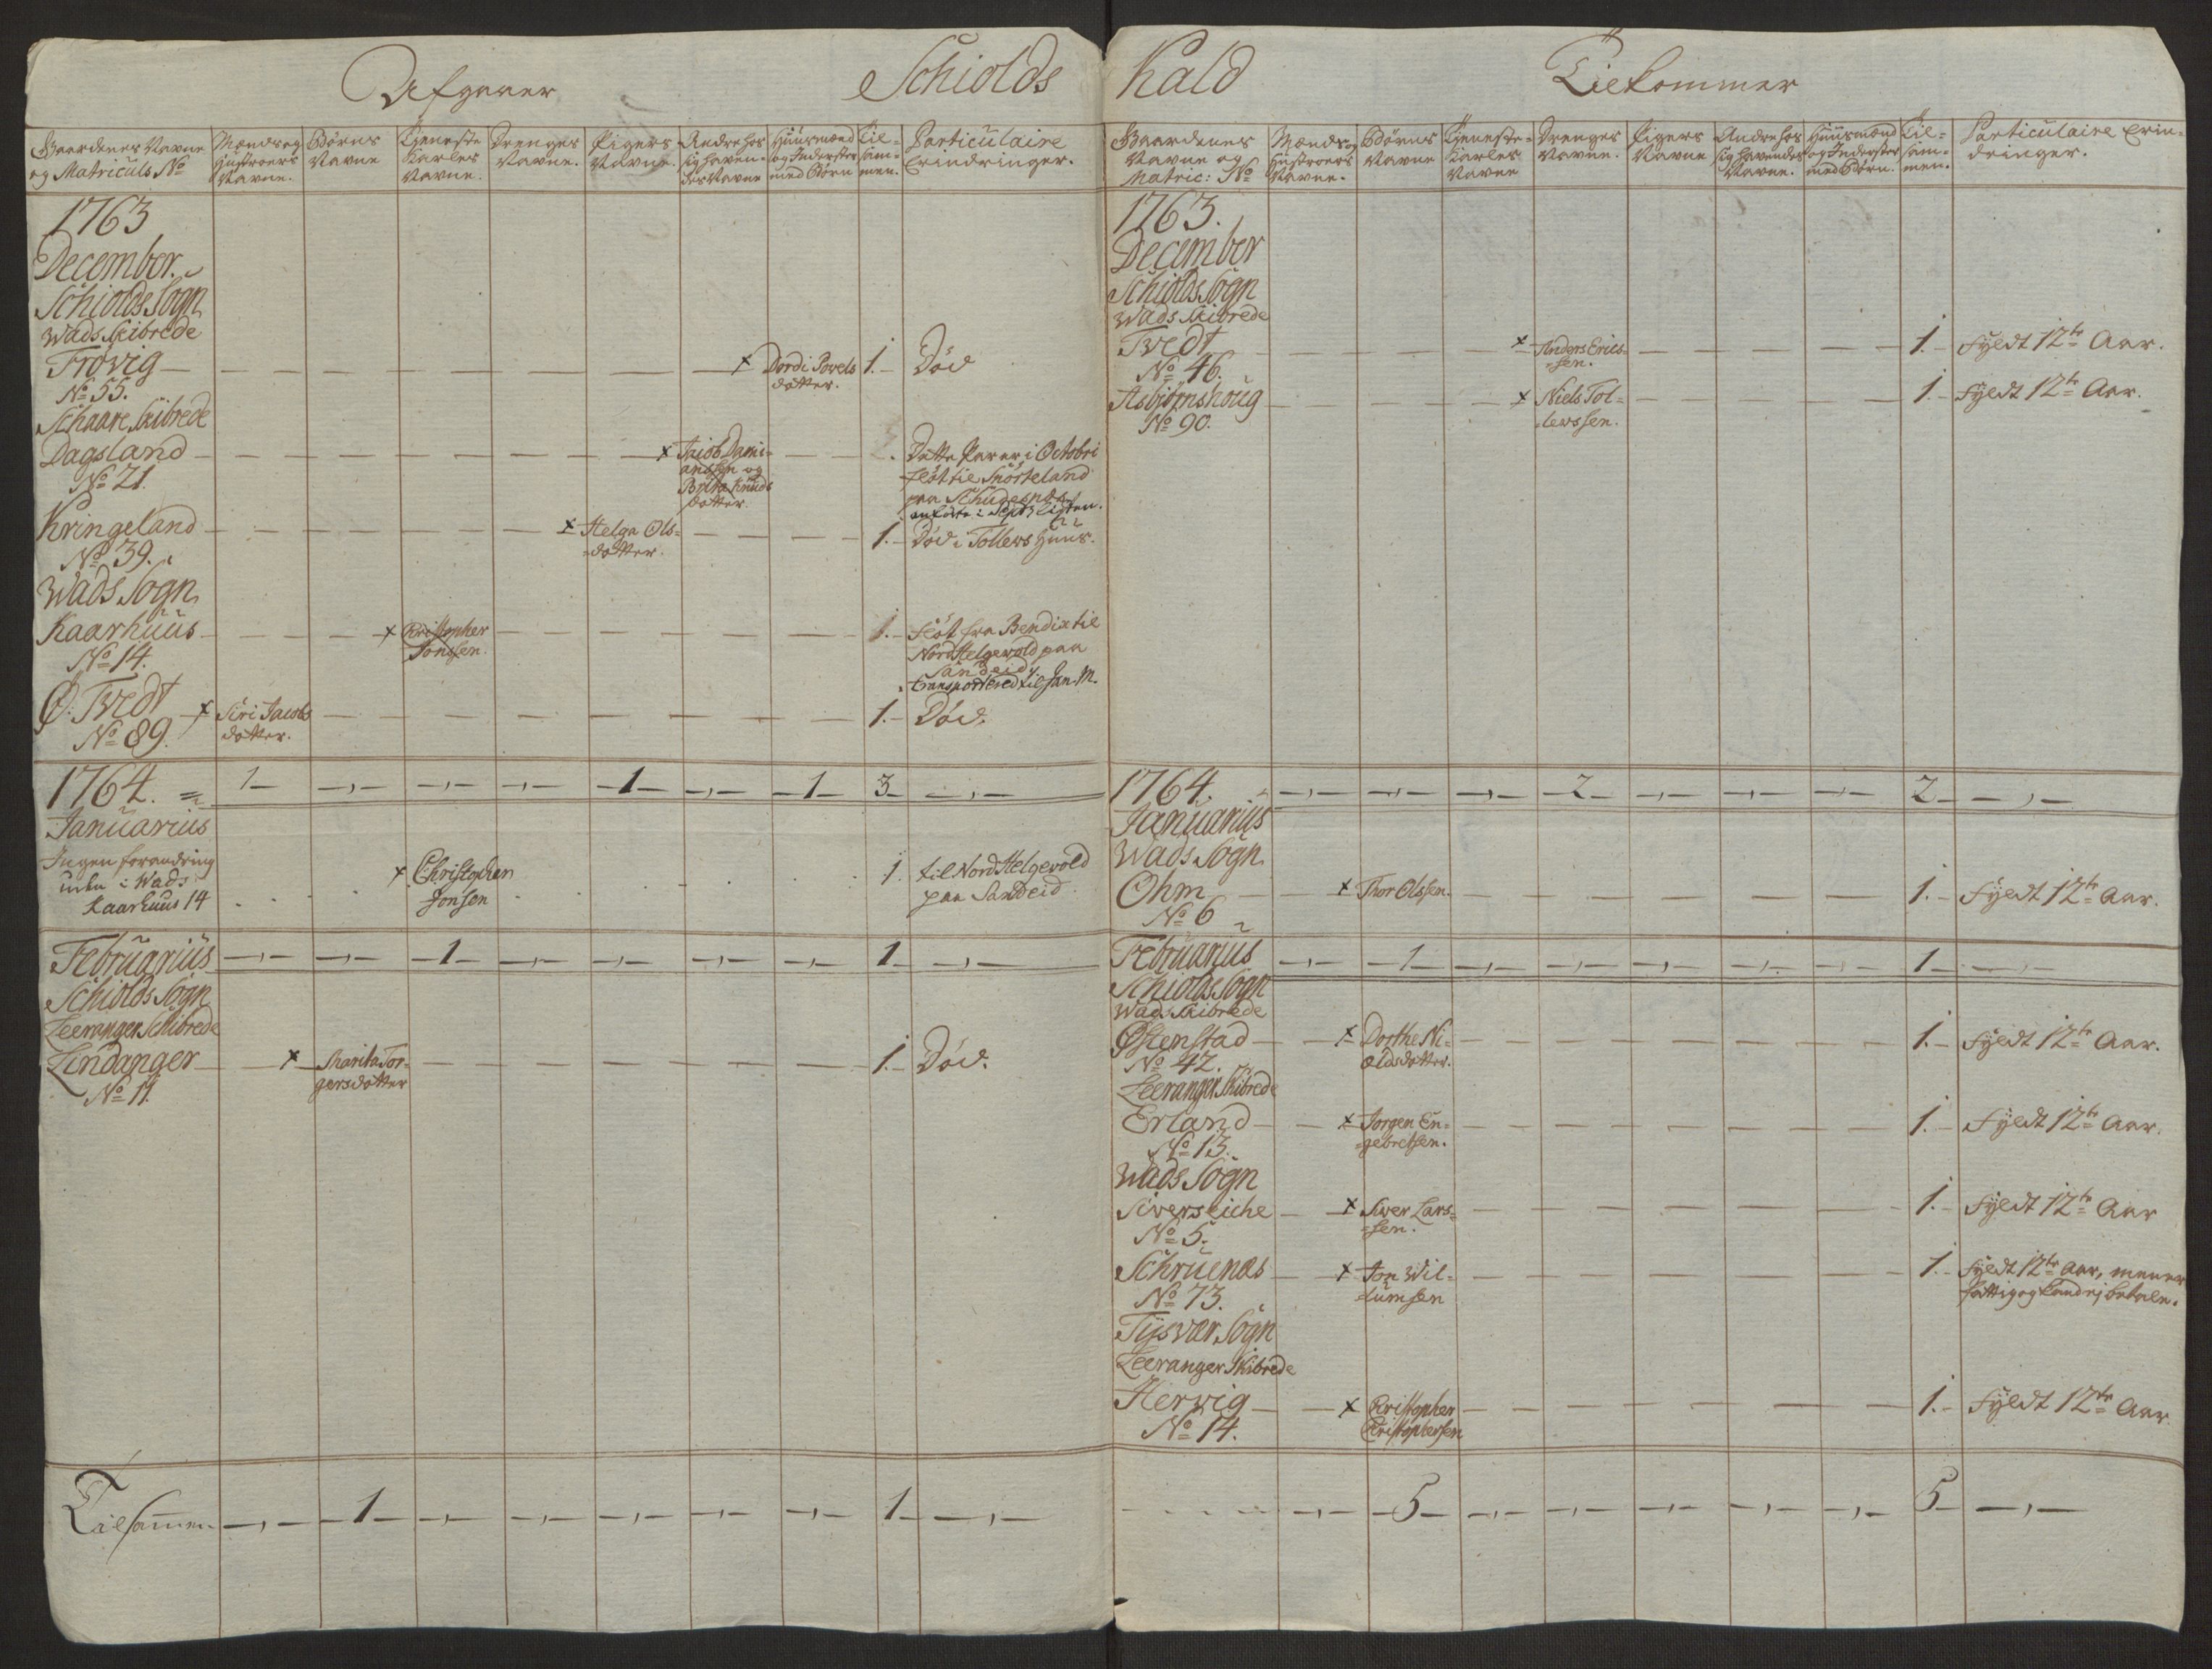 Afgaaer Schiolds
Gaardenes Navne og Matriculs No
Mænds og Hustroers Navne.
Børns Navne
Tieneste Karles Navne.
Drenges Navne.
Pigers Navne.
Andre hos sig havendes Navne
Huusmænd og Inderster med Børn
Tilsammen.
Particulaire Erindringer.
1763
December.
Schiolds Sogn
Wads Skibrede
Frøvig No 55. x Dordi Povels dotter. 1. Død
Schaare Skibrede
Dagsland No 21. x Jacob Damianssen og Brita Knuds dotter Dette Par er i Octobri fløt til Snørteland paa Schudesnæs anført i Sept: Listen.
Kringeland No 39. x Helga Ols=dotter. 1. Død i Tollews Huus.
Wads Sogn
Kaarhuus No 14. x Kristopher Jonssen. 1. Fløt fra Bendix til Nord Helgevold paa Sandeid
transporteret til Jan. M.
Ø: Tvedt No 89. x Siri Jacobs dotter. 1. Død.
1764. 1 - - - 1 - 1 3
Januarius
Ingen forandring uden i Wads
Kaarhuus 14 x Christopher Jonsen 1. til Nord Helgevold paa Sandeid
Februarius - - 1 - - - - 1
Schiolds Sogn
Leeranger Schibrede
Lindanger No 11. x Marita Torgersdotter 1. Død.
Tilsammen - 1 - - - - - 1
Kald Tilkommer
Gaardenes Navne og Matric: No
Mænds og Hustroers Navne.
Børns Navne
Tieneste-Karles Navne
Drenges Navne.
Pigers Navne
Andre hos sig havendes Navne.
Huusmænd og Inderster med Børn.
Tilsammen.
Particulaire Erindringer.
1763.
December
Schiolds Sogn
Wads Skibrede
Tvedt No 46. x Anders Ericssen. 1. Fyldt 12te Aar.
Asbiørnshoug No 90. x Niels Tollewssen. 1. Fyldt 12te Aar.
1764. - - - 2 - - - 2
Januarius
Wads Sogn
Ohm No 6 x Thor Olssen. 1. Fyldt 12te Aar.
Februarius - 1 - - - - - 1
Schiolds Sogn
Wads Skibrede
Østenstad No 42. x Dorthe Niolsdotter. 1. Fyldt 12te Aar.
Leeranger Skibrede
Erland No 13. x Jørgen Engebretsen. 1. Fyldt 12te Aar.
Wads Sogn
Siversliche No 5. x Siver Larssen. 1. Fyldt 12te Aar
Schruenæs No 73. x Jon Willumsen 1. Fyldt 12te Aar, men er fattig og kand ej betale.
Tysvær Sogn
Leeranger Skibrede
Hervig No 14. x Kristopher Kristophersen 1. Fyldt 12te Aar
- 5 - - - - - 5